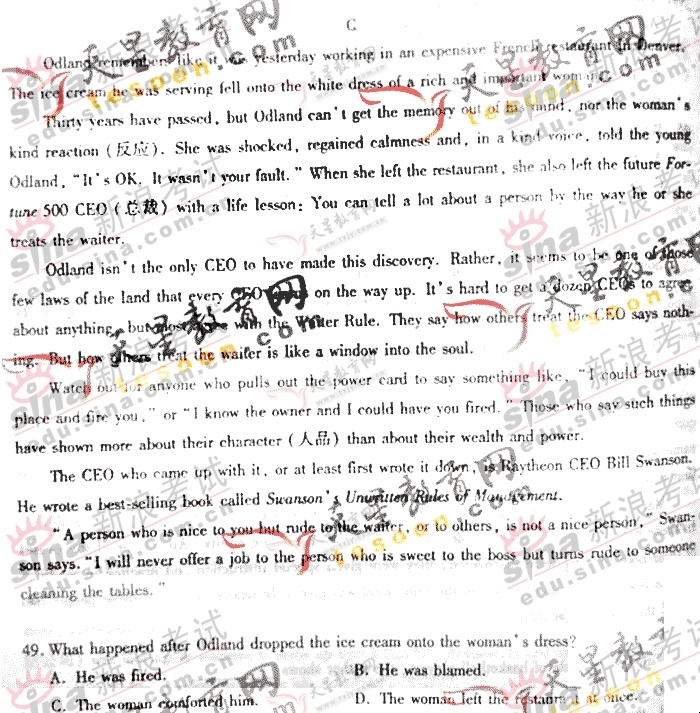 C
Odland remembers like it was yesterday working in an expensive French restaurant in Denver.
The ice cream he was serving fell onto the white dress of a rich and important woman.
Thirty years have passed, but Odland can't get the memory out of his mind, nor the woman's
kind reaction (反应). She was shocked, regained calmness and, in a kind voice, told the young
Odland, "It's OK. It wasn't your fault." When she left the restaurant, she also left the future For-
tune 500 CEO (总裁) with a life lesson: You can tell a lot about a person by the way he or she
treats the waiter.
Odland isn't the only CEO to have made this discovery. Rather, it seems to be one of those
few laws of the land that every CEO on the way up. It's hard to get a dozen CEOs to agree
about anything, but most agree with the Waiter Rule. They say how others treat the CEO says noth-
ing. But how others treat the waiter is like a window into the soul.
Watch out for anyone who pulls out the power card to say something like, "I could buy this
place and fire you," or "I know the owner and I could have you fired." Those who say such things
have shown more about their character (人品) than about their wealth and power.
The CEO who came up with it, or at least first wrote it down, is Raytheon CEO Bill Swanson.
He wrote a best-selling book called Swanson's Unwritten Rules of Management.
"A person who is nice to you but rude to the waiter, or to others, is not a nice person," Swan-
son says. "I will never offer a job to the person who is sweet to the boss but turns rude to someone
cleaning the tables."
49. What happened after Odland dropped the ice cream onto the woman's dress?
A. He was fired. B. He was blamed.
C. The woman comforted him. D. The woman left the restaurant at once.
天星教育网
tesoon.com
sina 新浪考试
edu.sina.com.cn